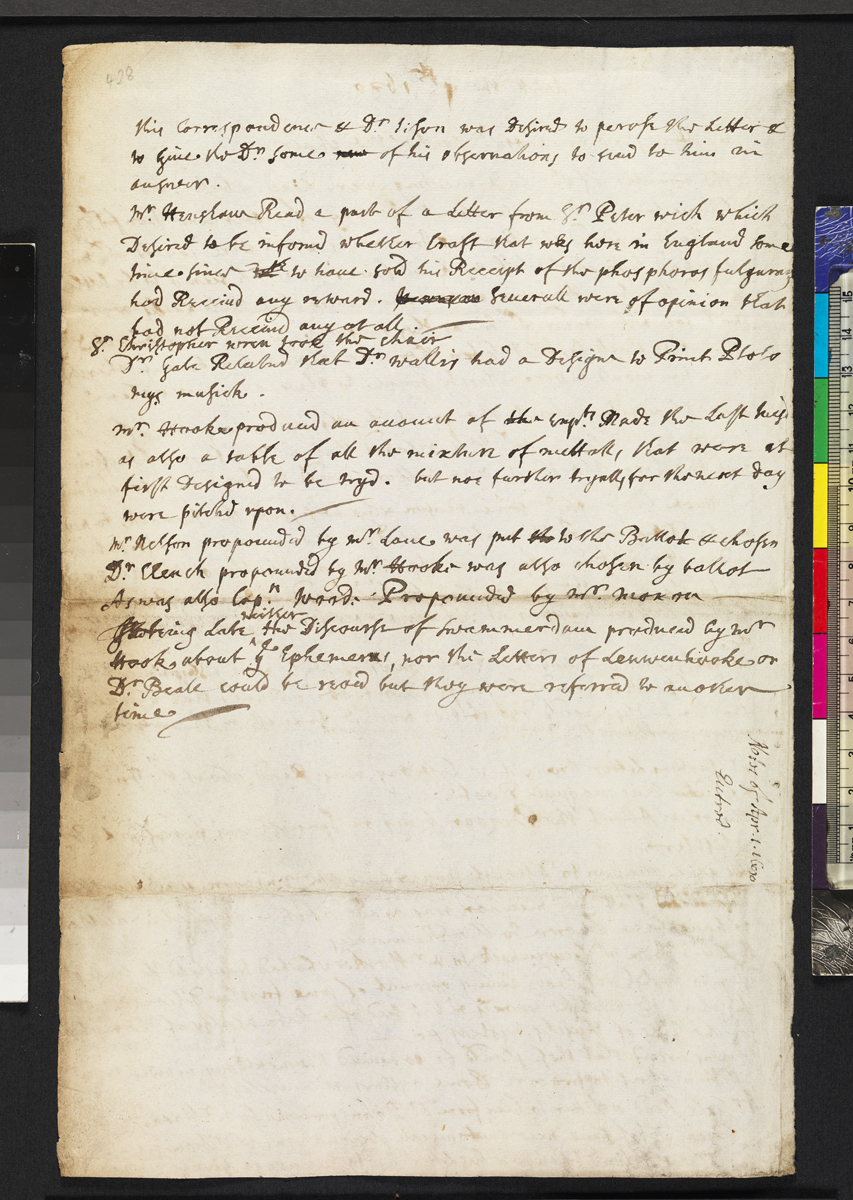 428
this Correspondence & Dr. Tison was desired to peruse the Letter &
to give the Dr. some new of his observations to send to him in
answer.
Mr. Henshaw Read a part of a Letter from Sr. Peter wich which
Desired to be informd whether Craft that was here in England some
time since to have sold his Receipt of the phosphoros fulgurans
had Receiud any reward. Seuerall were of opinion that
had not Receiud any at all.
Sr. Christopher wren took the chair
Dr. Gale Related that Dr. wallis had a Designe to Print Ptolo
mys musick.
Mr. Hooke produced an account of the expts. Made the Last
as also a table of all the mixture of mettalls that were at
first Designed to be tryd. but noe further tryalls for the next day
were pitchd upon.
Mr. Nelson propounded by Mr. Lane was put to the Ballot & chosen
Dr. Clench propounded by Mr. Hooke was also chosen by ballot
As was also Capn. Wood: Propounded by Mr. moxon
being Late neither the Discourse of Swammerdam produced by Mr
Hook about ye Ephemerus, nor the Letters of Leuwenhooke or
Dr. Beale could be read but they were referred to another
time
Notes of Apr. 1. 1680
Entred.